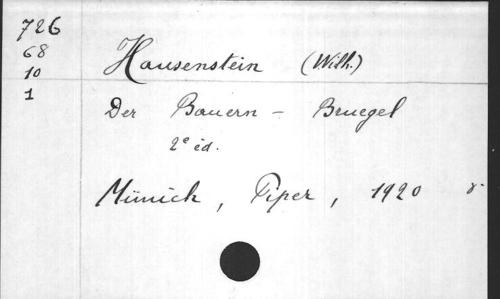 726
68
10
1
Hausenstein (Wilh.)
Der Bauern - Bruegel
2e éd.
Münich, Piper, 1920